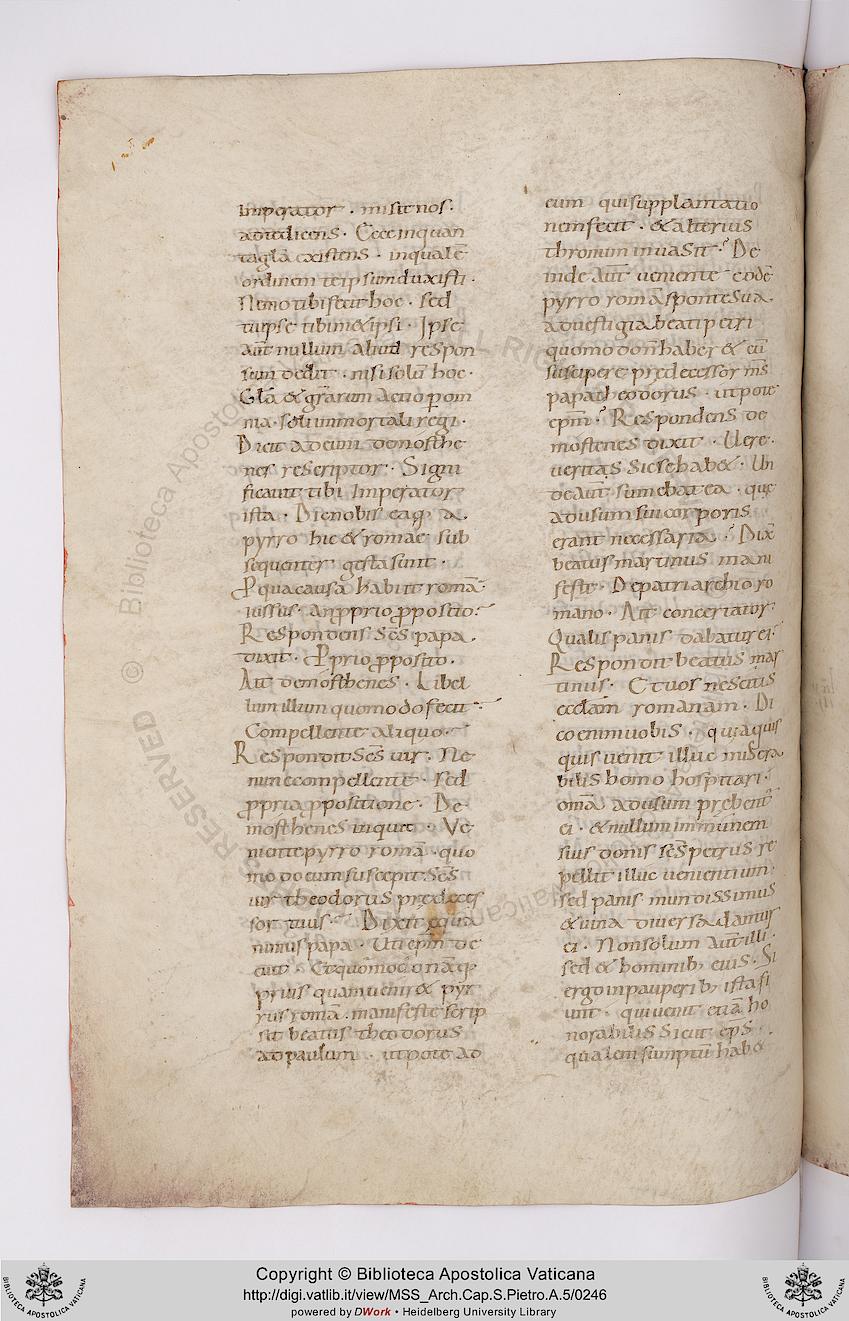 Imperator · misit nos·
ad te dicens · Ecce in quan
ta gl̄a existens · in quale
ordinem te ipsum duxisti ·
Nemo tibi fecit hoc · sed
tu ipse tibimet ipsi · Ipse
aut̄ nullum aliud respon
sum dedit · nisi solū hoc ·
Gl̄a & gr̄arum actio ꝑ om
nia · soli inmortali regi ·
Dicit ad eum demosthe
nes rescriptor · Signi
ficavit tibi Imperator
ista · Dic nobis ea q; a
pyrro hic & romae sub
sequenter gesta sunt ·
P qua causa habiit romā ·
iussus · an ꝓprio ꝓposito ·
Respondens sc̄s papa ·
dixit · Prio ꝓposito ·
Ait demosthenes · Libel
lum illum quomodo fecit ·
Compellente aliquo ·
Respondit sc̄s vir · Ne
mine compellente · sed
ꝓpria ꝓpositione · De
mosthenes inquit · Ve
niente pyrro romā · quo
modo eum suscepit sc̄s
vir theodorus predeces
sor tuus · Dixit equa
nimus papa · Uti ep̄m de
cuit · Et quomodo
prius quam venir& pyr
rus romā · manifeste scrip
sit beatus theodorus
ad paulum · utpote ad
eum qui supplantatio
nem fecit · & alterius
thronum invasit · De
inde aut̄ veniente eodē
pyrro romā sponte sua ·
ad vestigia beati petri
quomodo n̄ haber& eū
suscipere predecessor m̄s
papa theodorus · utpote
ep̄m · Respondens de
mostenes dixit · Vere ·
veritas sic se hab& · Un
de aut̄ sumebat ea · que
ad usum sui corporis
erant necessaria · Dix̄
beatus martinus mani
feste · De patriarchio ro
mano · Ait concertator
Qualis panis dabatur ei ·
Respondit beatus mar
tinus · Et vos nescitis
eccl̄am romanam · Di
co enim vobis · quia quis
quis venit illuc misera
bilis homo hospitari ·
om̄a ad usum prebent̄
ei · & nullum immunem
suis donis sc̄s petrus re
pellit illuc venientium ·
sed panis mundissimus
& vina diversa dantur
ei · Non solum aut̄ illi ·
sed & hominib; eius · Si
ergo in pauperib; ista fi
unt · qui venit etiā ho
norabilis sicut ep̄s ·
qualem sumptū hab&
Copyright © Biblioteca Apostolica Vaticana
http://digi.vatlib.it/view/MSS_Arch.Cap.S.Pietro.A.5/0246
powered by DWork • Heidelberg University Library